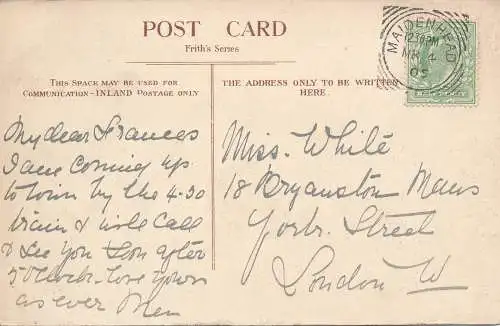 POST CARD
Frith's Series
THIS SPACE MAY BE USED FOR
COMMUNICATION-INLAND POSTAGE ONLY
THE ADDRESS ONLY TO BE WRITTEN
HERE.
MAIDENHEAD
12 30 PM
MR 4
05
My dear Frances
I am Coming up
to town by the 4-30
train & will Call
& See you soon after
5 O'Clock. love yours
as ever
Miss. White
18 Bryanston Mans
York. Street
London W